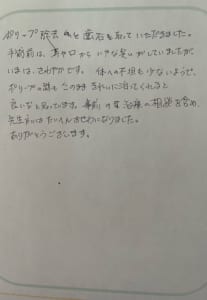 ポリープ除去と歯石を取っていただきました。
手術前は、鼻や口からいやな臭いがしていましたが、
いまは、さわやかです。体への不担も少ないようで、
ポリープの跡もこのままきれいに治ってくれると
良いなと思っています。事前の相談を含め、
先生方にはたいへんおせわになりました。
ありがとうございます。